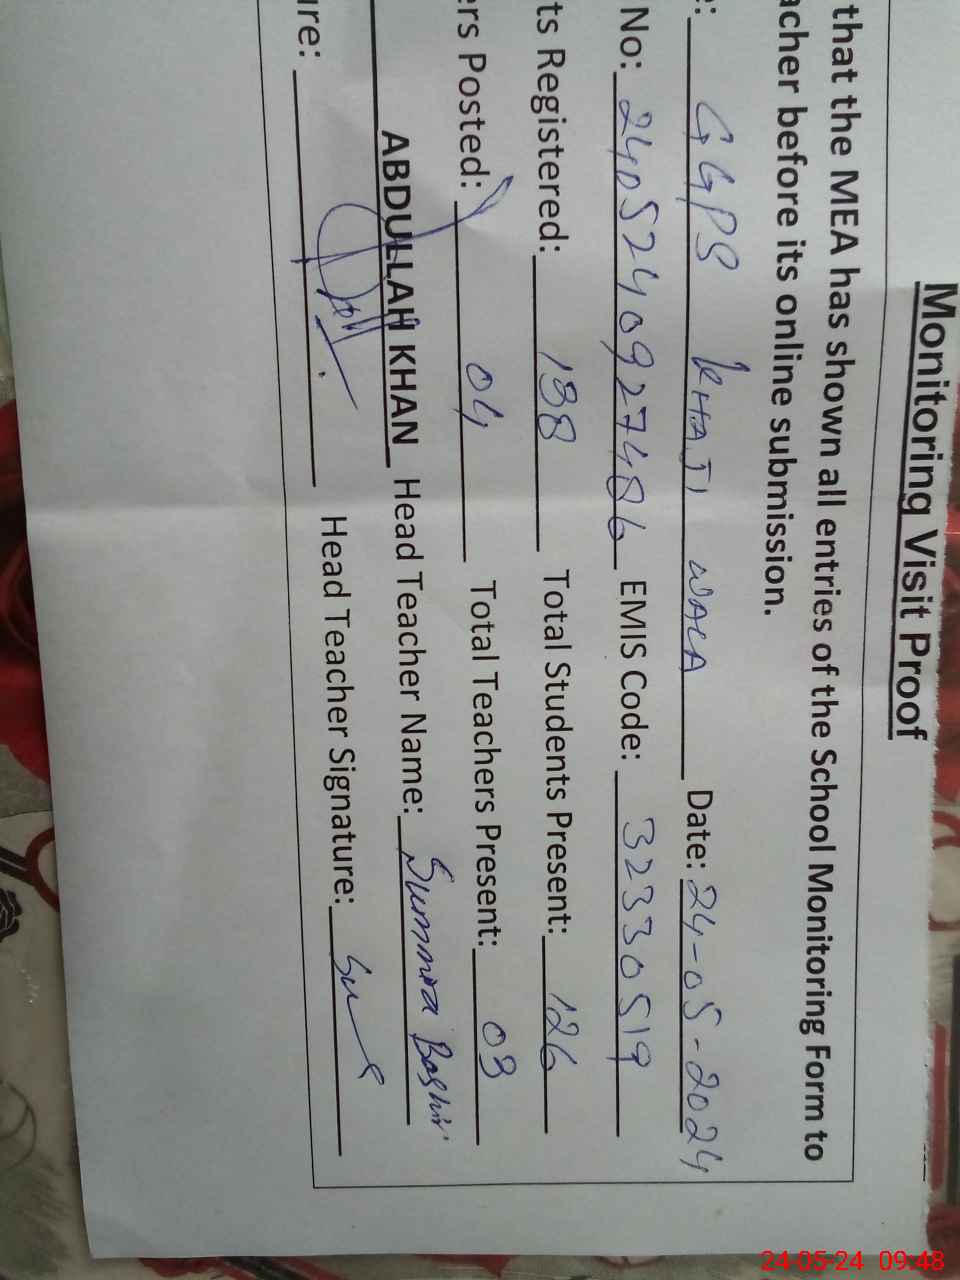 Monitoring Visit Proof
that the MEA has shown all entries of the School Monitoring Form to
acher before its online submission.
e: GGPS KHAJI WALA Date: 24-05-2024
No: 2405240927486 EMIS Code: 32330519
ts Registered: 138 Total Students Present: 126
ers Posted: 04 Total Teachers Present: 03
ABDULLAH KHAN Head Teacher Name: Summra Bashir
ure: Head Teacher Signature:
24-05-24 09:48